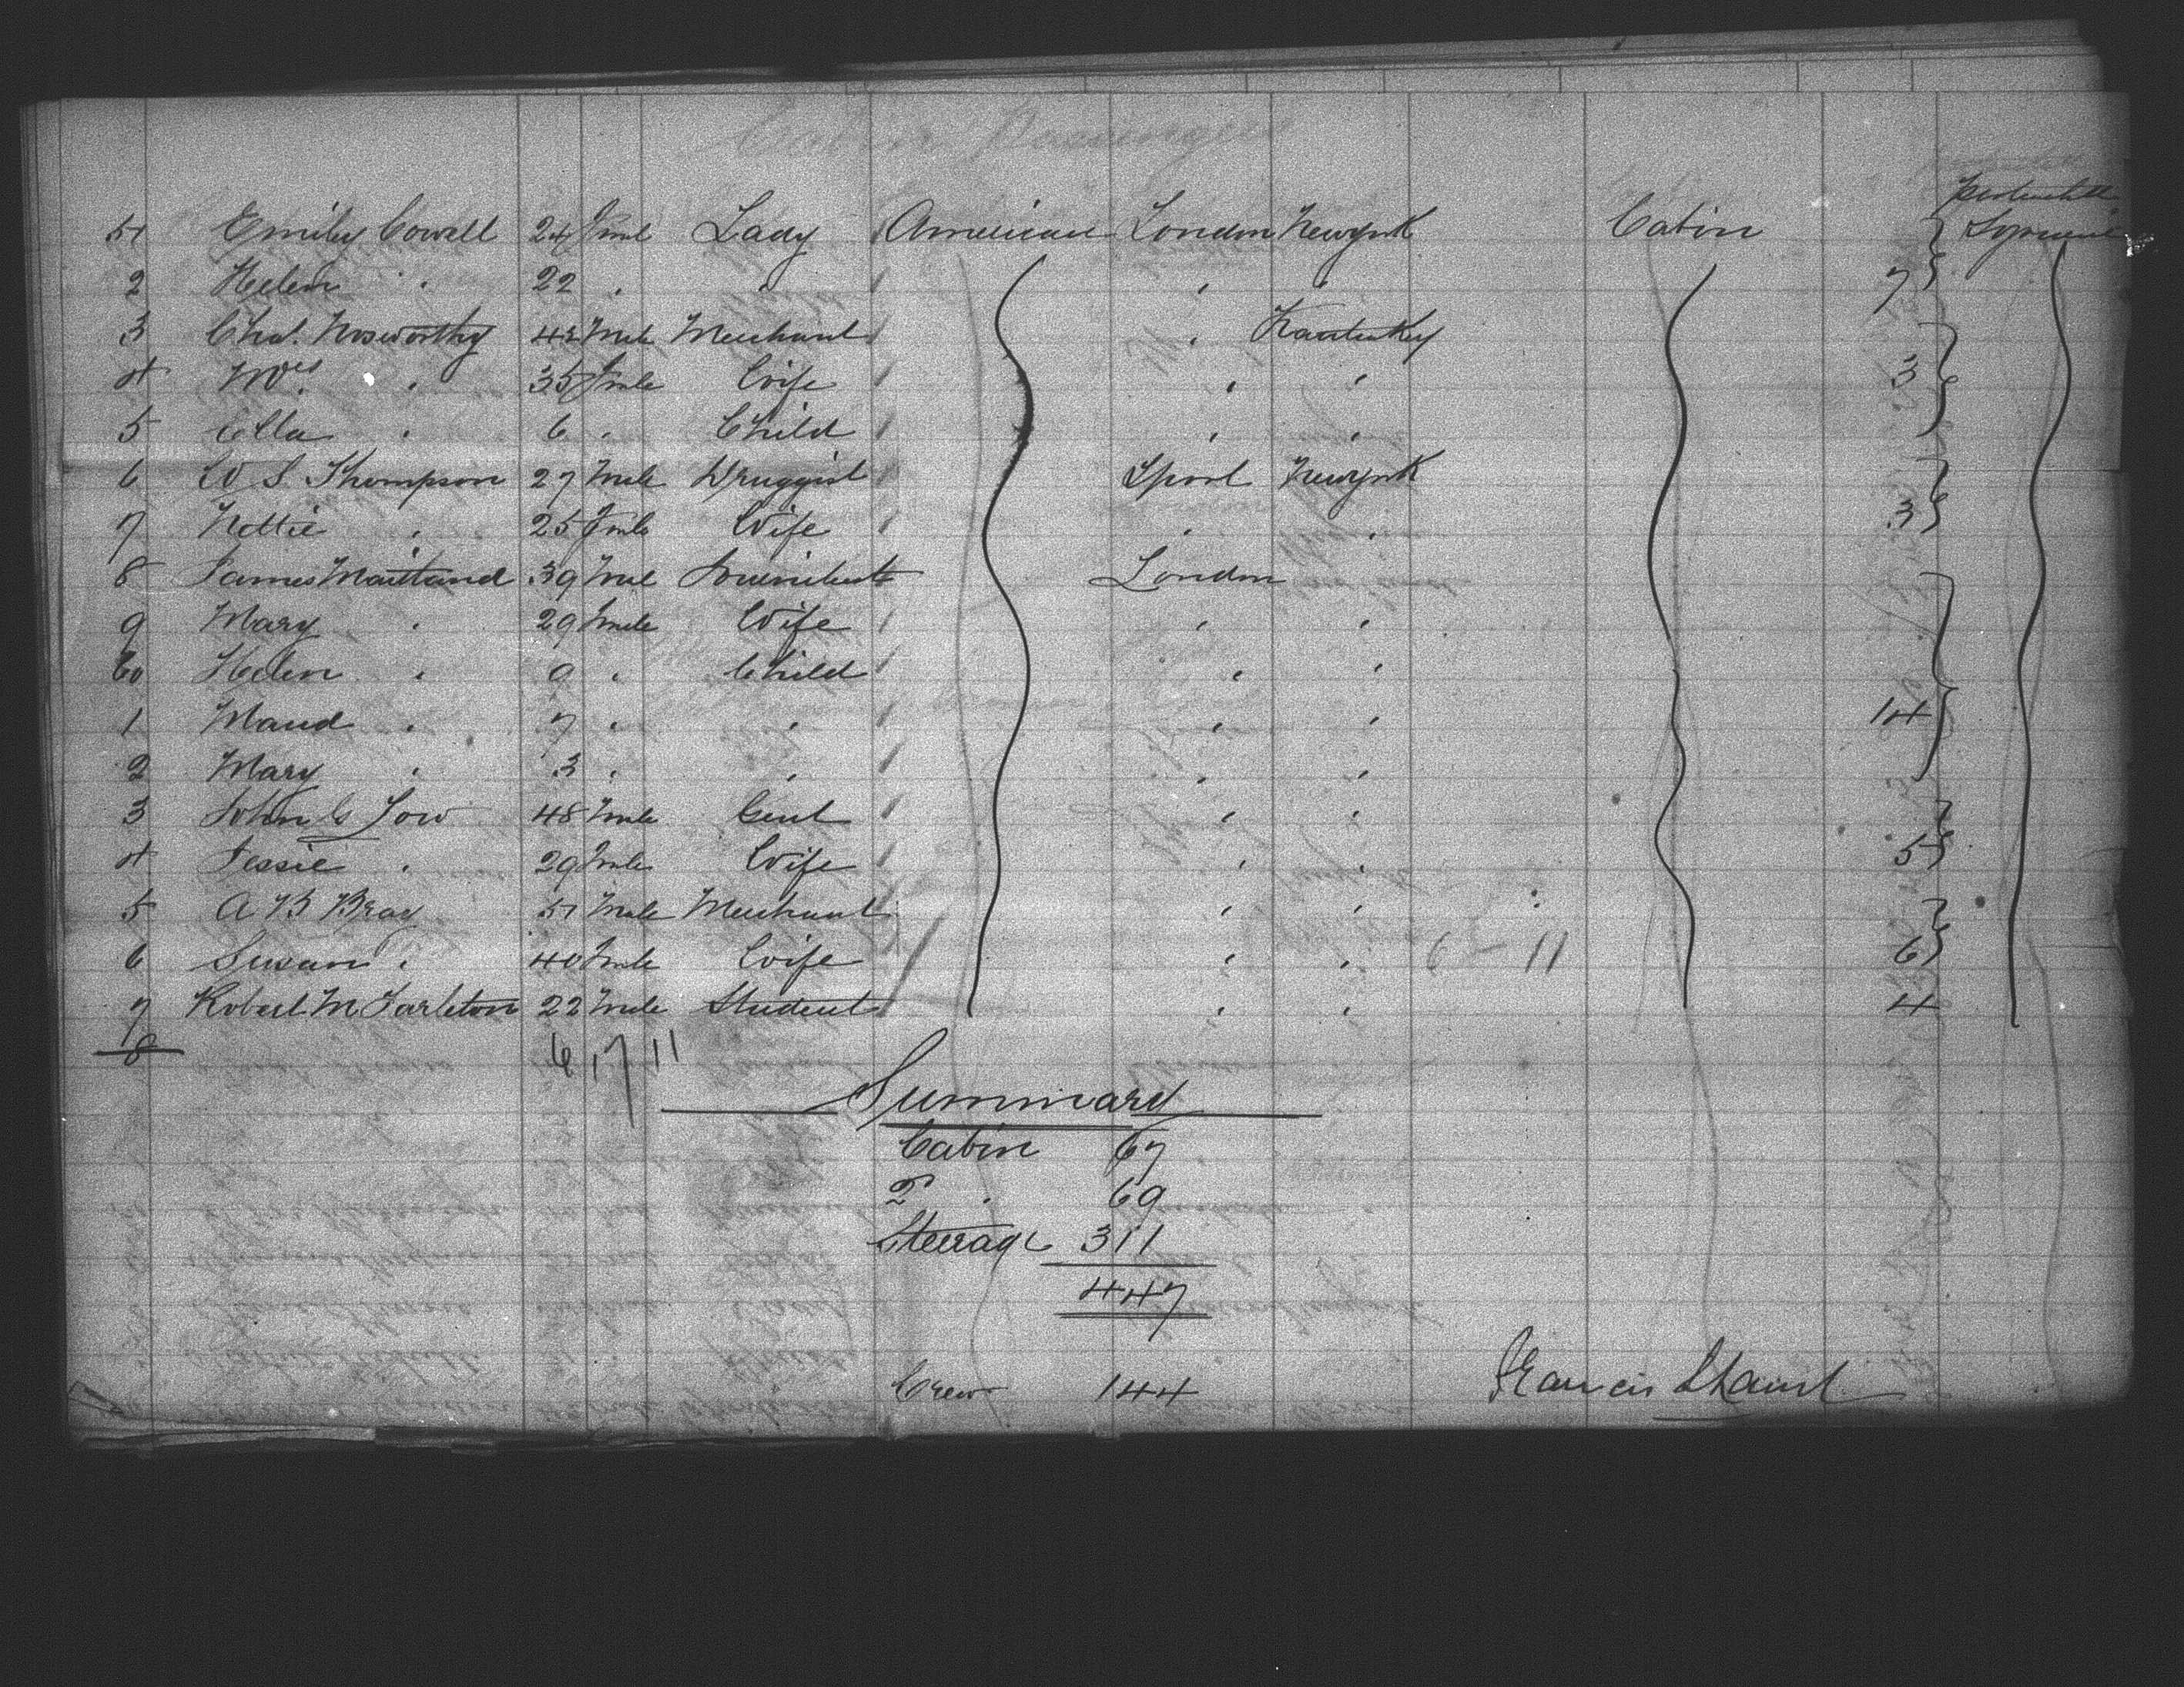 Cabin Passengers
51 Emily Cowell 24 Fmle Lady American London Newyork Cabin
2 Helen " 22 " " " " 7
3 Chas. Nosworthy 42 Male Merchant " Kentucky
4 Mrs " 35 Fmle Wife " " 3
5 Ella " 6 " Child " "
6 W S Thompson 27 Male Druggist Lpool Newyork
7 Nettie " 25 Fmle Wife " " 3
8 James Maitland 39 Male London
9 Mary " 29 Fmle Wife " "
60 Helen " 9 " Child " "
1 Maud " 7 " " " " 14
2 Mary " 3 " " " "
3 John C Low 48 Male Gent " "
4 Jessie " 29 Fmle Wife " " 5
5 A B Bray 51 Male Merchant " "
6 Susan " 40 Fmle Wife " " 6 - 11 6
7 Robert M Tarleton 22 Male Student " " 4
8 6 17 11
Summary
Cabin 67
2 " 69
Steerage 311
447
Crew 144
Francis